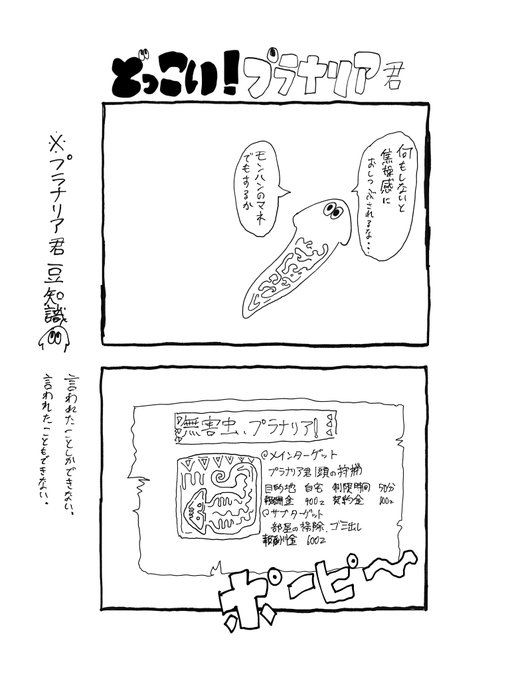 どっこい！プラナリア君
何もしないと
焦燥感に
おしつぶされるな…
モンハンのマネ
でもするか
無害虫、プラナリア！
◎メインターゲット
プラナリア君1頭の狩猟
目的地 自宅 制限時間 50分
報酬金 900z 契約金 100z
◎サブターゲット
部屋の掃除、ゴミ出し
報酬金 600z
ポーピー〜
※プラナリア君豆知識
言われたことしかできない。
言われたこともできない。